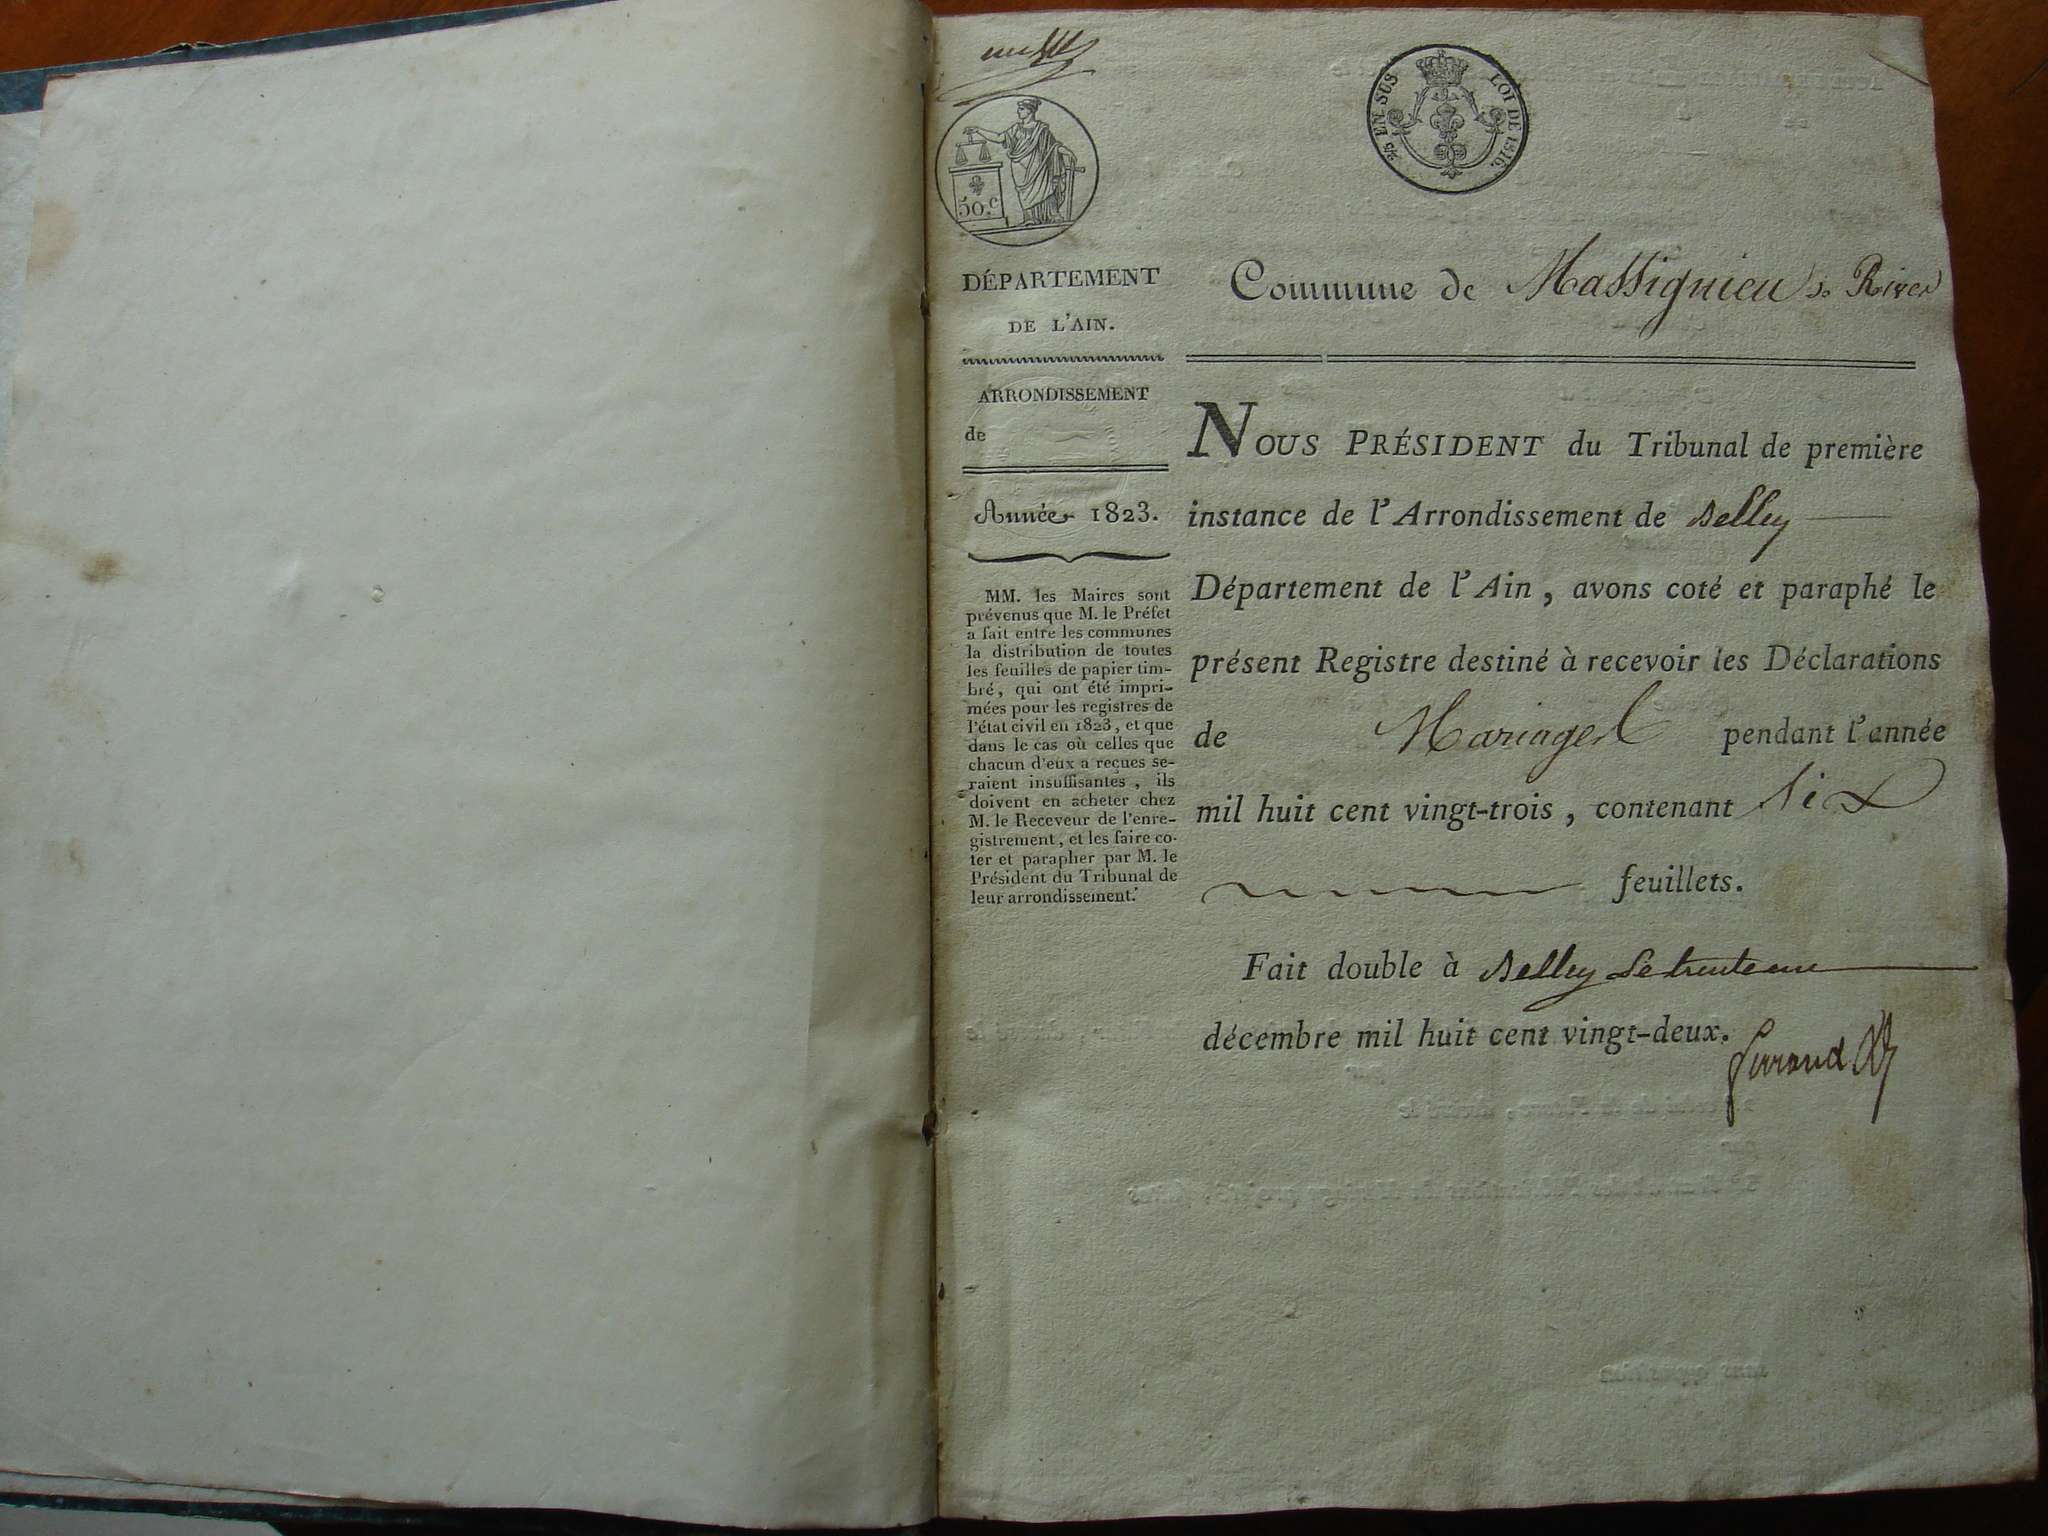 2/5 EN SUS LOI DE 1816.
50.c
DÉPARTEMENT
DE L'AIN.
ARRONDISSEMENT
de
Année 1823.
MM. les Maires sont
prévenus que M. le Préfet
a fait entre les communes
la distribution de toutes
les feuilles de papier tim-
bré, qui ont été impri-
mées pour les registres de
l'état civil en 1823, et que
dans le cas où celles que
chacun d'eux a reçues se-
raient insuffisantes, ils
doivent en acheter chez
M. le Receveur de l'enre-
gistrement, et les faire co-
ter et parapher par M. le
Président du Tribunal de
leur arrondissement.
Commune de Massignieu de Rives
NOUS PRÉSIDENT du Tribunal de première
instance de l'Arrondissement de Belley
Département de l'Ain, avons coté et paraphé le
présent Registre destiné à recevoir les Déclarations
de Mariages pendant l'année
mil huit cent vingt-trois, contenant Six
feuillets.
Fait double à Belley le trente un
décembre mil huit cent vingt-deux.